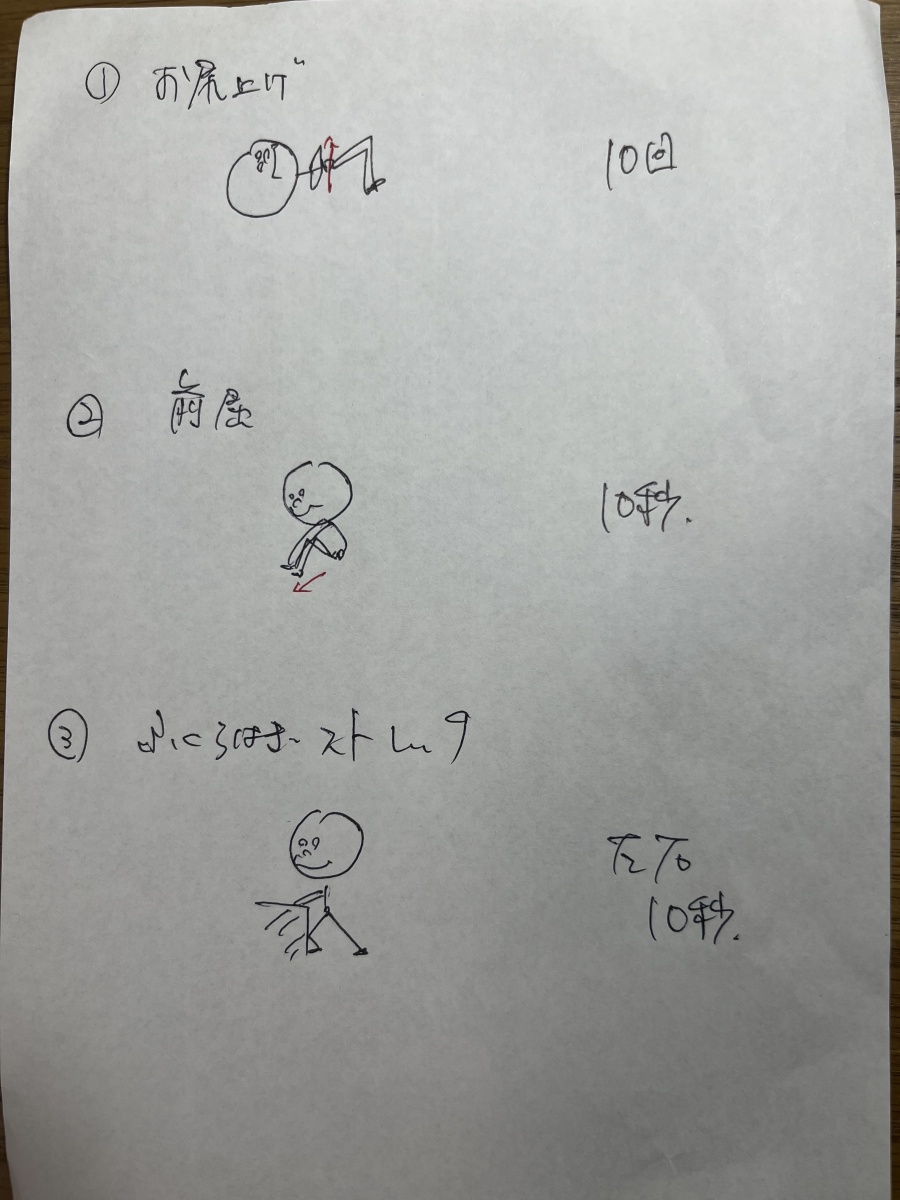 ① お尻上げ
10回
② 前屈
10秒.
③ ふくらはぎストレッチ
左右
10秒.